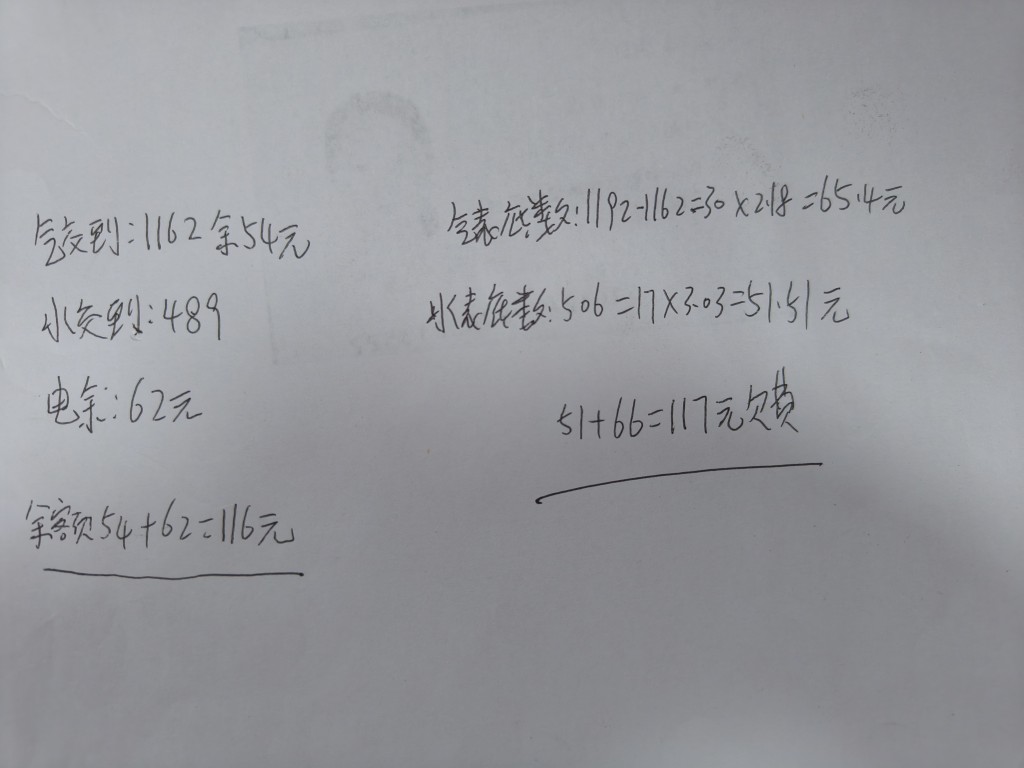 气交到:1162余54元
水交到:489
电余:62元
余额54+62=116元
气表底数:1192-1162=30×2.18=65.4元
水表底数:506=17×3.03=51.51元
51+66=117元欠费